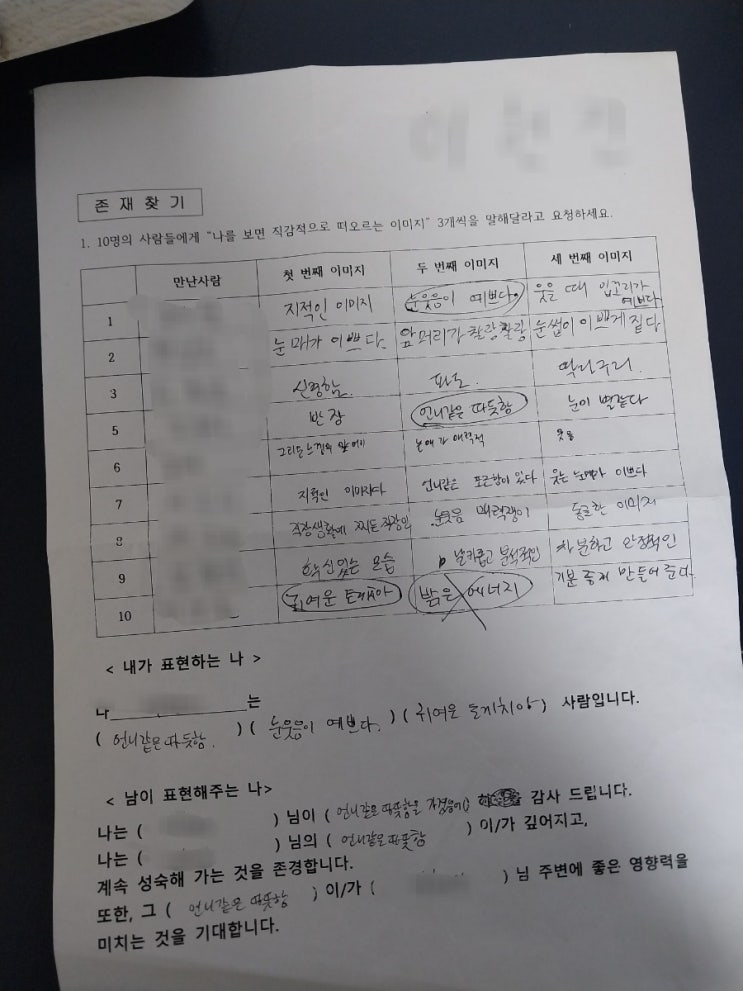 존 재 찾 기
1. 10명의 사람들에게 “나를 보면 직감적으로 떠오르는 이미지” 3개씩을 말해달라고 요청하세요.
만난사람 첫 번째 이미지 두 번째 이미지 세 번째 이미지
1 지적인 이미지 눈웃음이 예쁘다. 웃을 때 입꼬리가 예쁘다
2 눈매가 이쁘다. 앞머리가 찰랑찰랑 눈썹이 이쁘게 짙다
3 신령함. 파도. 딱다구리
5 반장 언니같은 따듯함 눈이 별같다
6 눈매가 매력적
7 지적인 이미지다 언니같은 포근함이 있다 웃는 눈매가 이쁘다
8 직장생활에 찌든 직장인 눈웃음 매력쟁이 동글한 이미지
9 확신있는 모습 날카롭고 분석적인 차분하고 안정적인
10 귀여운 토끼치아 밝은 에너지 기분 좋게 만들어 준다.
< 내가 표현하는 나 >
나 는
( 언니같은 따듯함. ) ( 눈웃음이 예쁘다. ) ( 귀여운 토끼치아 ) 사람입니다.
< 남이 표현해주는 나>
나는 ( ) 님이 ( 언니같은 따듯함을 ) 감사 드립니다.
나는 ( ) 님의 ( 언니같은 따듯함 ) 이/가 깊어지고,
계속 성숙해 가는 것을 존경합니다.
또한, 그 ( 언니같은 따듯함 ) 이/가 ( ) 님 주변에 좋은 영향력을
미치는 것을 기대합니다.